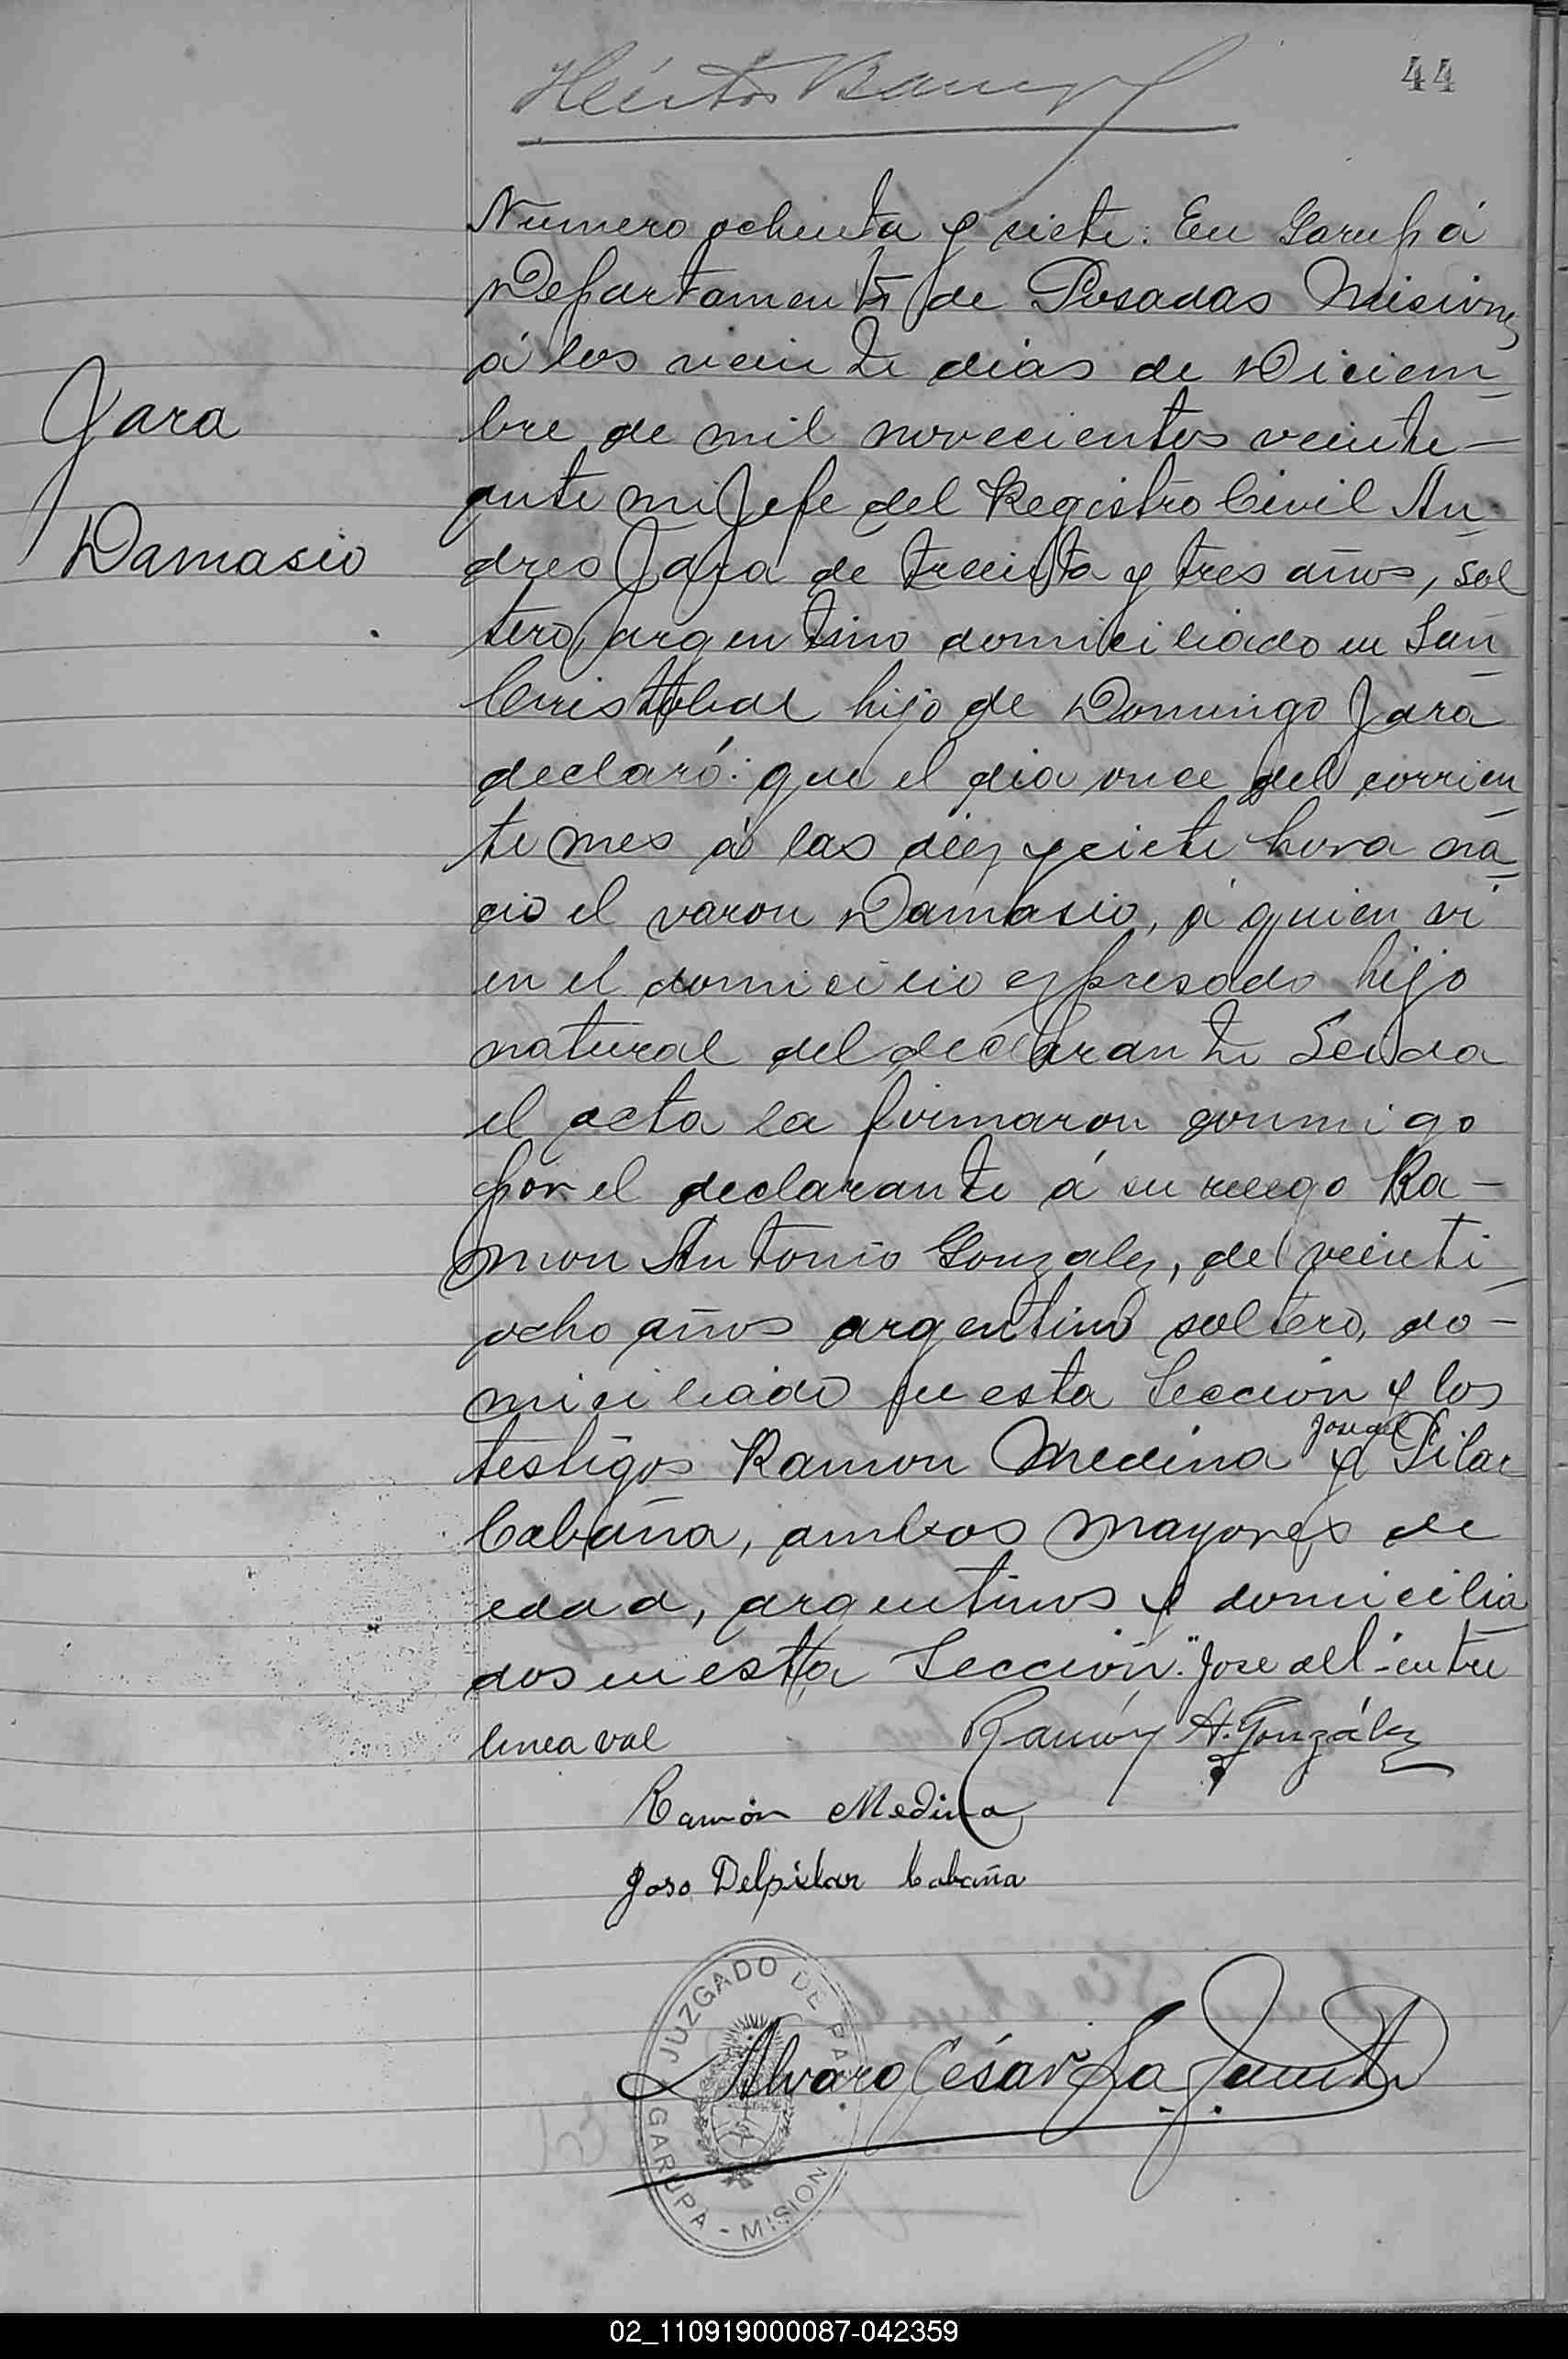 44
Numero ochenta y siete: En Garupá
Departamento de Posadas Misiones
á los veinte dias de Diciem
bre de mil novecientos veinte-
ante mi Jefe del Registro Civil An
Jara
dres Jara de treinta y tres años, sol
Damasio
tero, argentino domiciliado en San
Cristobal hijo de Domingo Jara
declaró: que el dia once del corrien
te mes á las diez y siete hora na
cio el varon Damasio, á quien vi
en el domicilio expresado hijo
natural del declarante Leida
el acta la firmaron conmigo
por el declarante á su ruego Ra-
mon Antonio Gonzalez, de veinti
ocho años argentino soltero, do-
miciliado en esta Sección y los
testigos Ramon Medina y José del Pilar
Cabaña, ambos mayores de
edad, argentinos y domicilia
dos en esta Sección. "Jose del"-entre
linea val
Ramón A. González
Ramón Medina
Joso Delpilar Cabaña
JUZGADO DE PAZ
Alvaro César La
GARUPA - MISION
02_110919000087-042359